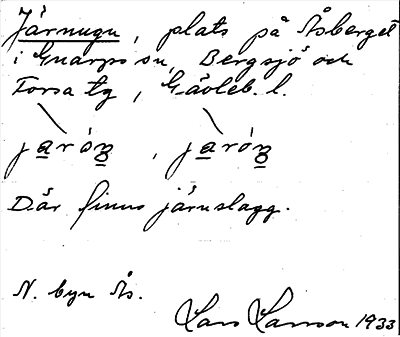 Järnugn, plats på Åsberget
i Gnarps sn, Bergsjö och
Forsa tg, Gävleb. l.
jarón, jarón
Där finns järnslagg.
N. byn Ås.
Lars Larsson 1933